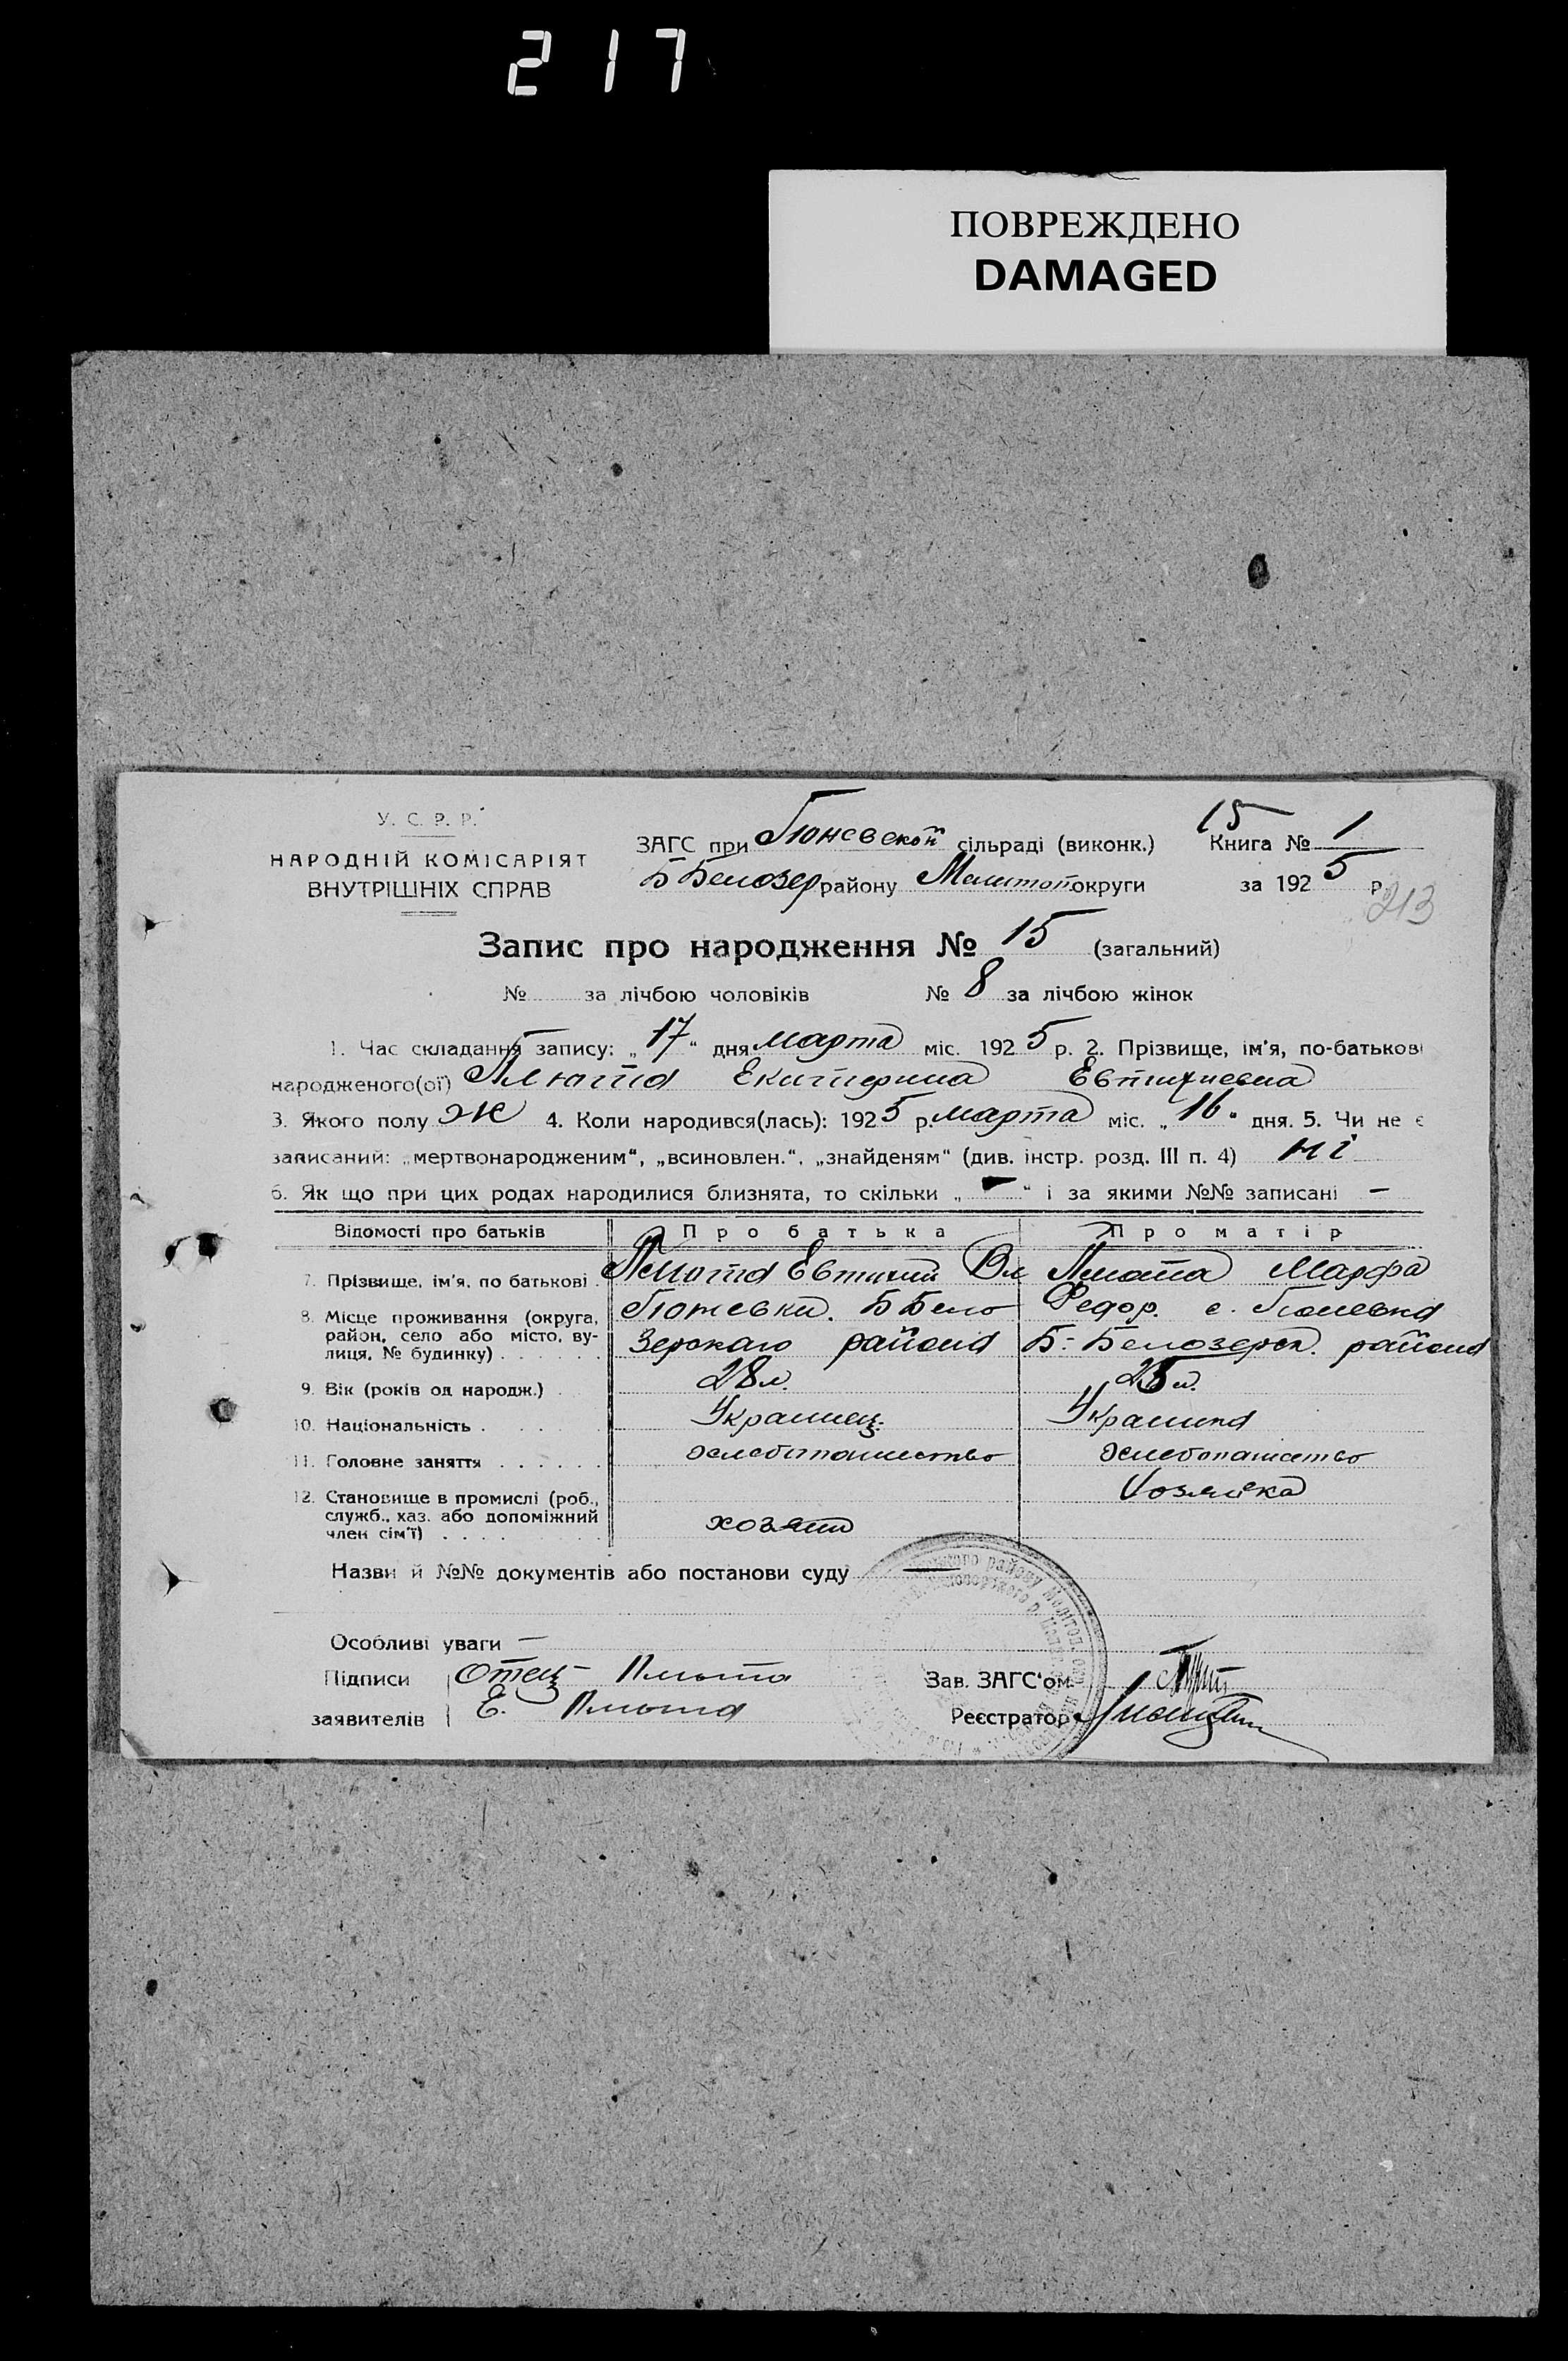 217
ПОВРЕЖДЕНО
DAMAGED
У. С. Р. Р.
НАРОДНІЙ КОМІСАРІЯТ
ВНУТРІШНІХ СПРАВ
15
ЗАГС при Гюневской сільраді (виконк.) Книга № 1
Б Белозер району Мелитоп округи за 1925 р.
213
Запис про народження № 15 (загальний)
№ за лічбою чоловіків № 8 за лічбою жінок
1. Час складання запису: „17" дня марта міс. 1925 р. 2. Прізвище, ім'я, по-батькові
народженого(ої) Плюта Екатерина Евтихиевна
3. Якого полу Ж 4. Коли народився(лась): 1925 р. марта міс. „16" дня. 5. Чи не є
записаний: „мертвонародженим", „всиновлен.", „знайденям" (див. інстр. розд. III п. 4) ні
6. Як що при цих родах народилися близнята, то скільки „ — " і за якими №№ записані —
Відомості про батьків Про батька Про матір
7. Прізвище, ім'я, по батькові . Плюта Евтихий Вл Плюта Марфа
8. Місце проживання (округа, район, село або місто, вулиця, № будинку) . . . . . .
Гюневки. Б Бело
Зерскаго района
Федор. с. Гюневка
Б-Белозерск. района
9. Вік (років од народж.) . 28 л. 25 л.
10. Національність . . . . . Украинец. Украинка
11. Головне заняття . . . . . . хлебопашество хлебопашество
12. Становище в промислі (роб., служб., хаз. або допоміжний член сім'ї) . . . .
хозяин
хозяйка
Назви й №№ документів або постанови суду —
Особливі уваги —
Підписи Отец - Плюта Зав. ЗАГС'ом
заявителів Е. Плюта Реєстратор